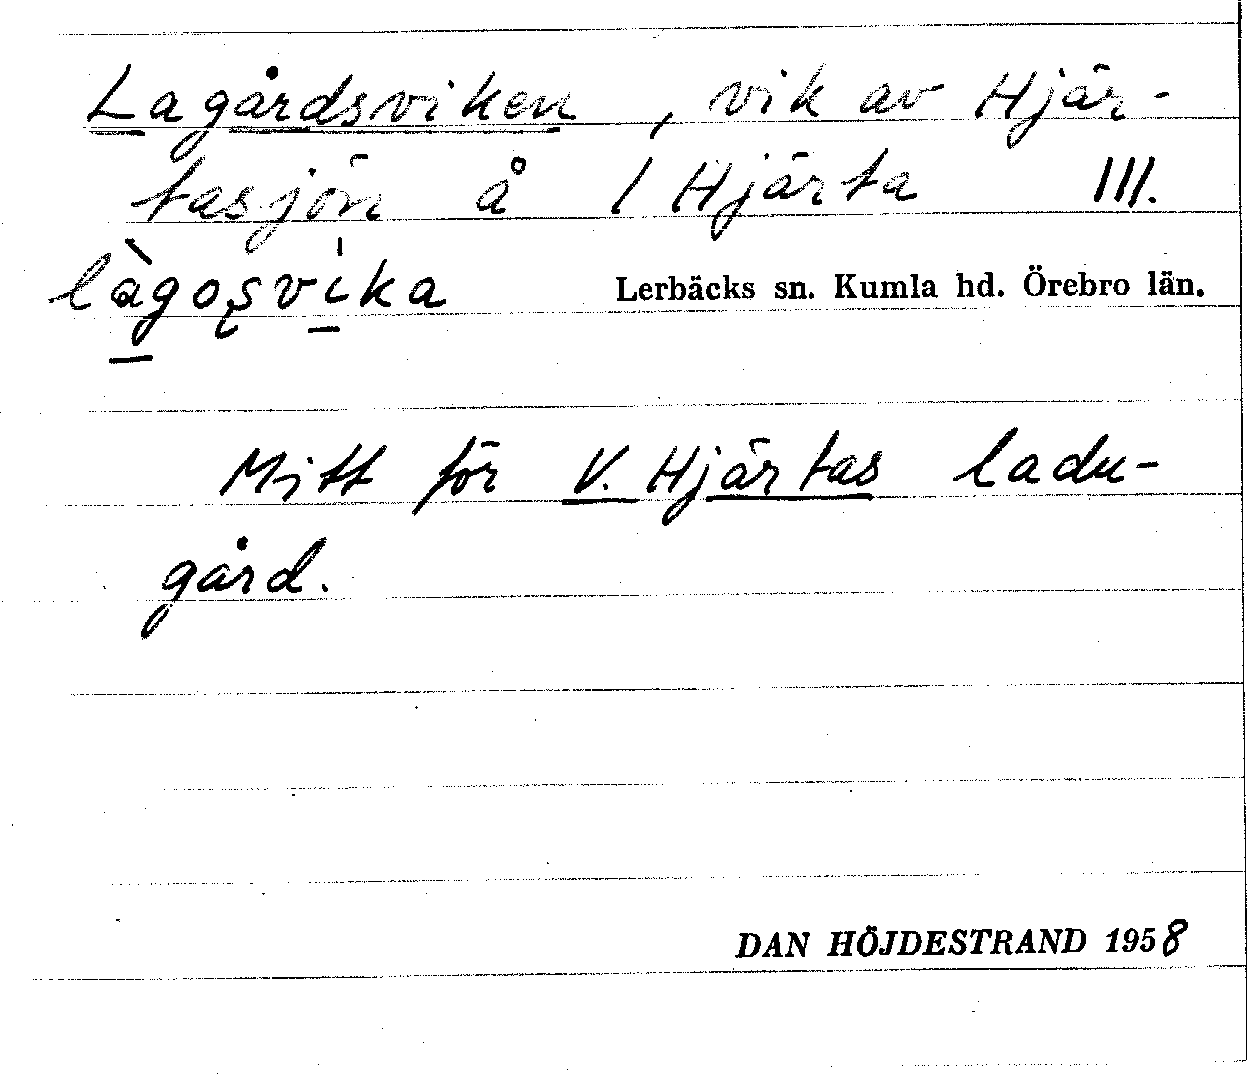 Lagårdsviken, vik av Hjär-
tasjön å 1 Hjärta III.
làgoʂvika Lerbäcks sn. Kumla hd. Örebro län.
Mitt för V. Hjärtas ladu-
gård.
DAN HÖJDESTRAND 1958